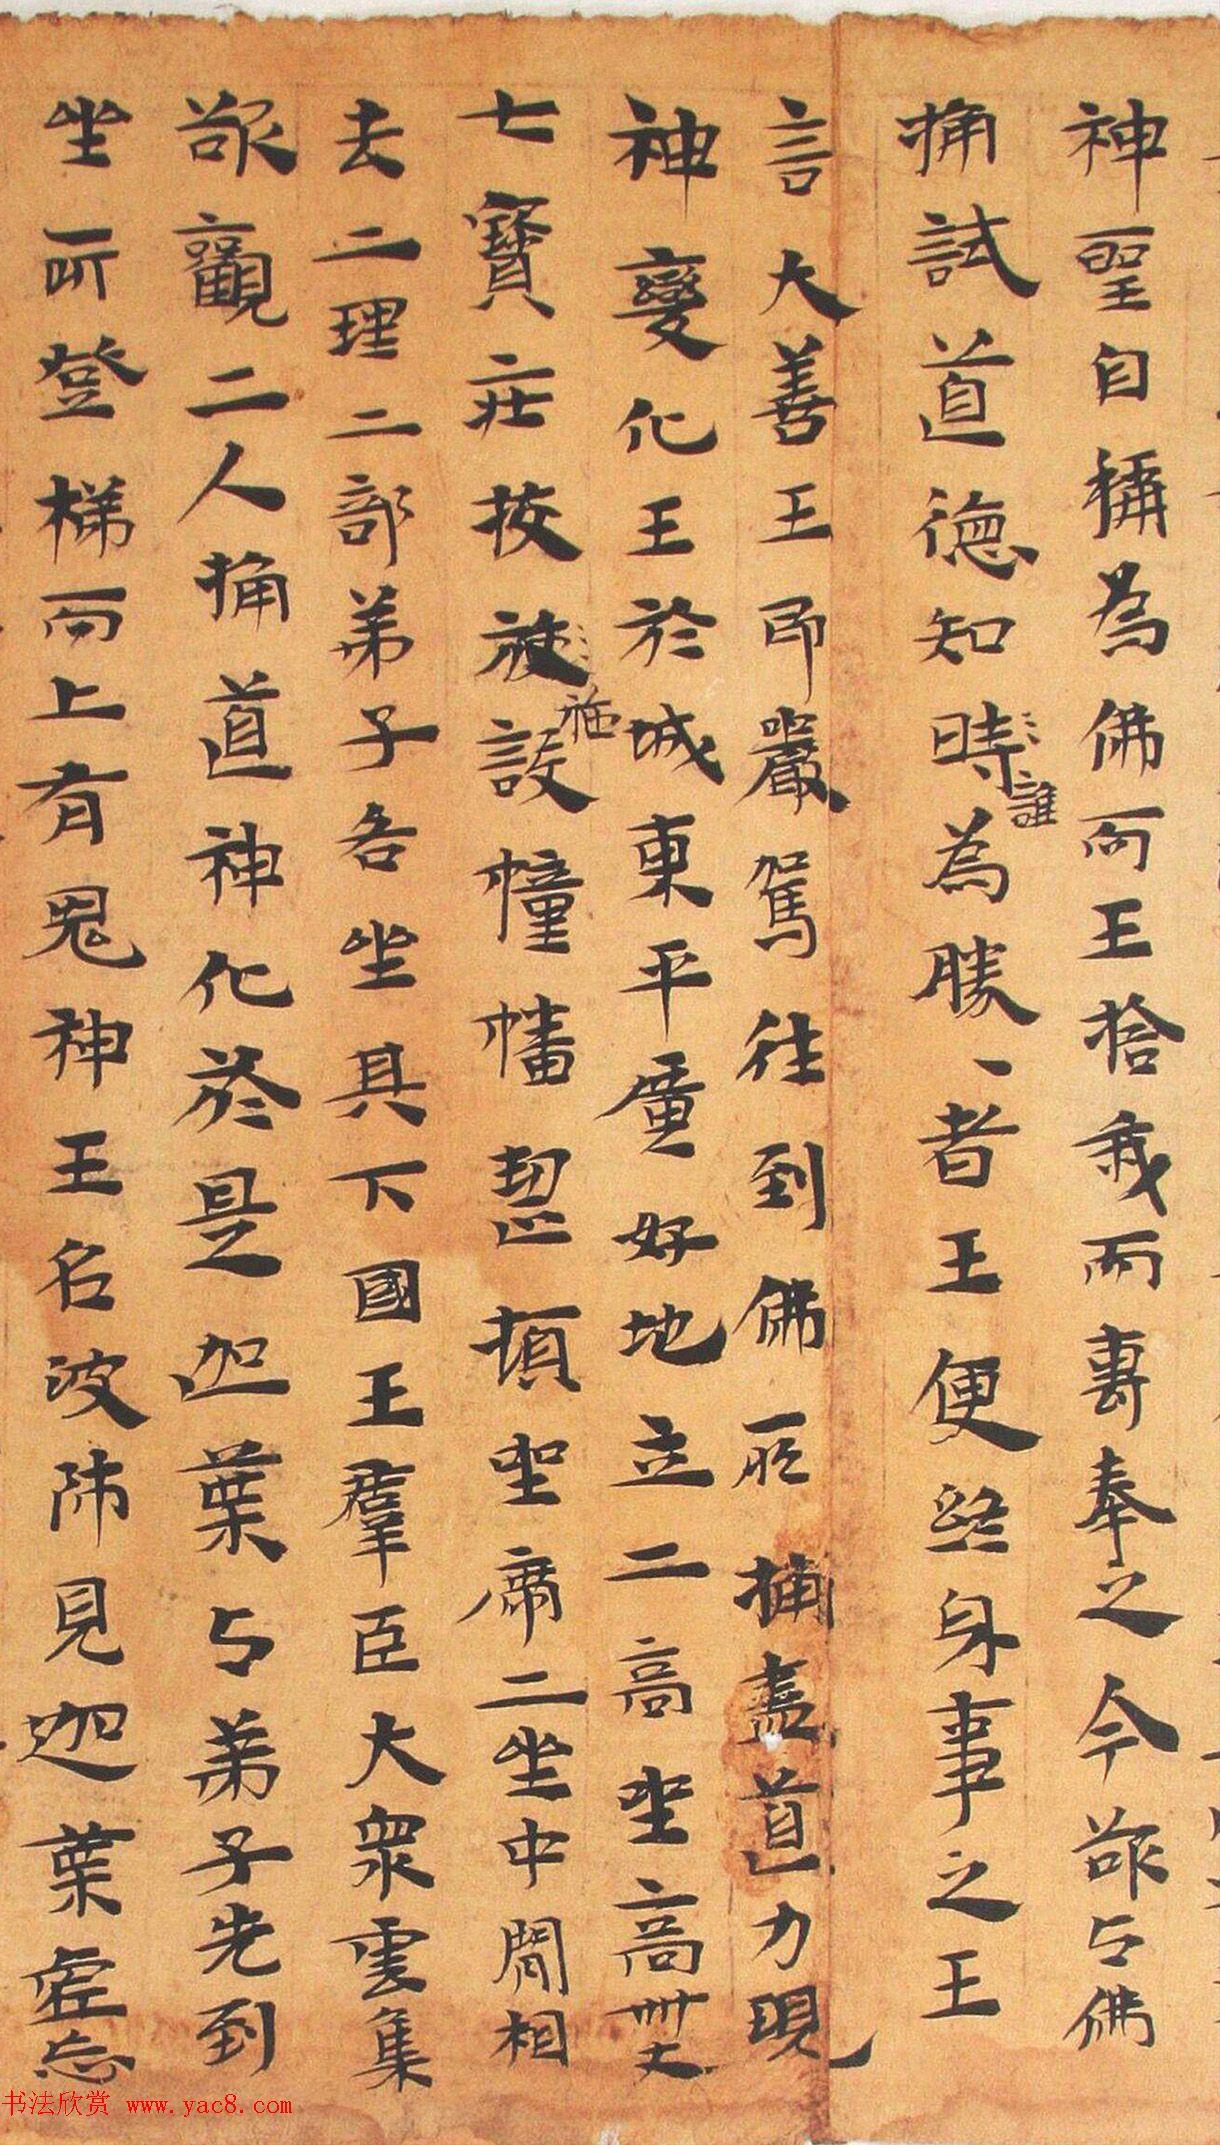 神聖自稱為佛而王捨我而壽奉之今欲与佛
捔試道德知時為勝〻者王便終身事之王
誰
言大善王即嚴駕往到佛所捔盡道力現
神變化王於城東平廣好地立二高坐高卌丈
七寶莊挍被設幢幡𢡱頓坐席二坐中間相
施
去二理二部弟子各坐其下國王羣臣大衆雲集
欲觀二人捔道神化於是迦葉与弟子先到
坐所登梯而上有鬼神王名波師見迦葉虛忘
书法欣赏 www.yac8.com